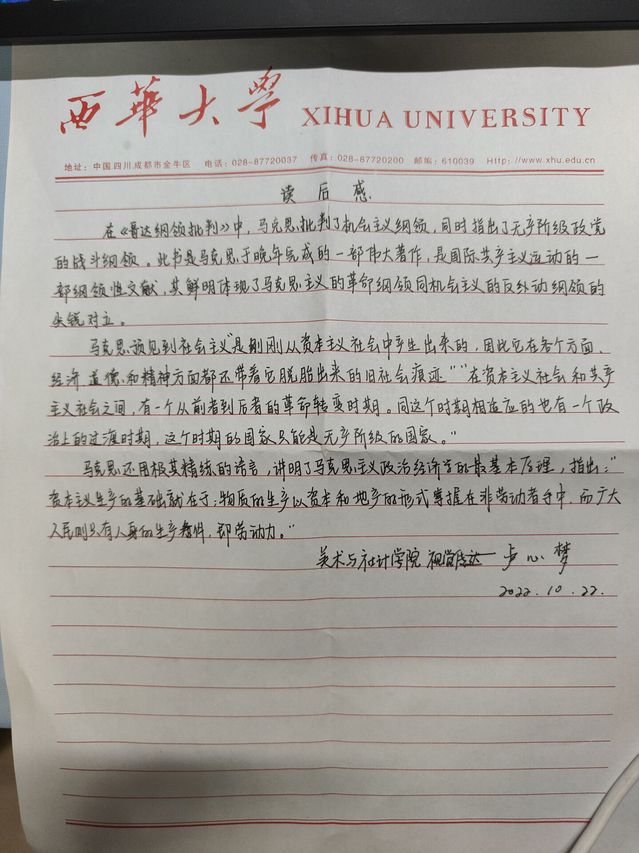 西華大學 XIHUA UNIVERSITY
地址：中国.四川.成都市金牛区 电话：028-87720037 传真：028-87720200 邮编：610039 Http://www.xhu.edu.cn
读后感
在《哥达纲领批判》中，马克思批判了机会主义纲领，同时指出了无产阶级政党
的战斗纲领。此书是马克思于晚年完成的一部伟大著作，是国际共产主义运动的一
部纲领性文献，其鲜明体现了马克思主义的革命纲领同机会主义的反动纲领的
尖锐对立。
马克思预见到社会主义“是刚刚从资本主义社会中产生出来的，因此它在各个方面、
经济、道德和精神方面都还带着它脱胎出来的旧社会痕迹”“在资本主义社会和共产
主义社会之间，有一个从前者到后者的革命转变时期。同这个时期相适应的也有一个政
治上的过渡时期，这个时期的国家只能是无产阶级的国家。”
马克思还用极其精练的语言，讲明了马克思主义政治经济学的最基本原理，指出：“
资本主义生产的基础就在于：物质的生产以资本和地产的形式掌握在非劳动者手中，而广大
人民则只有人身的生产条件，即劳动力。”
美术与设计学院 视觉传达 卢心梦
2022.10.22.